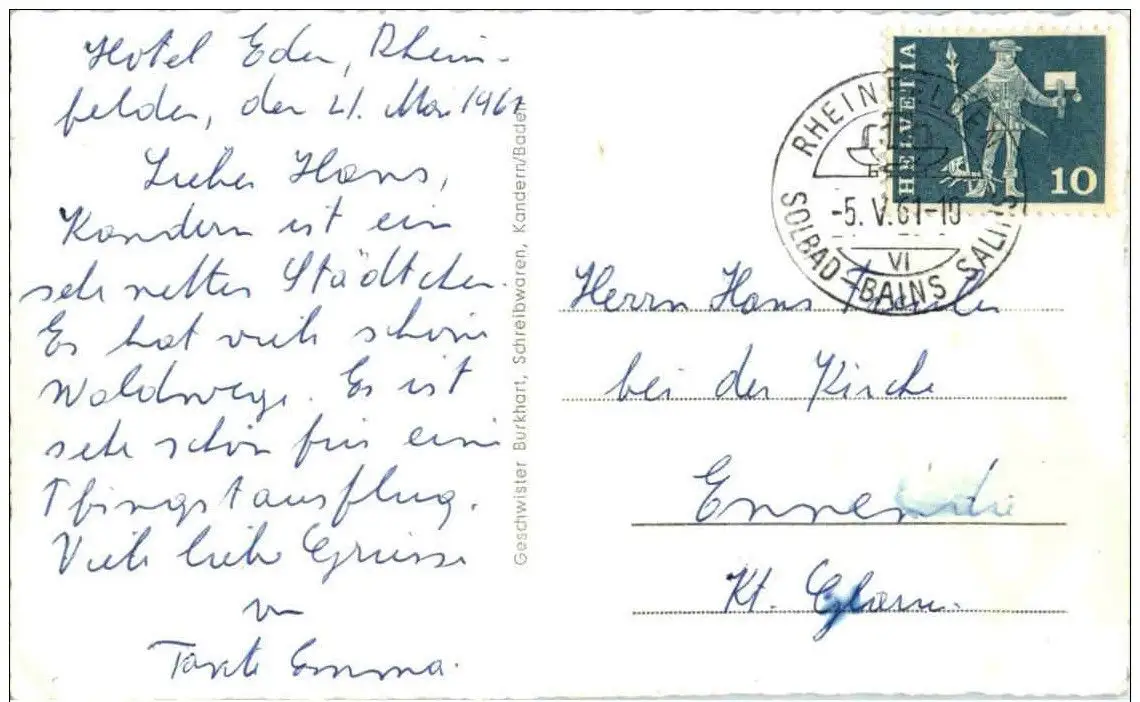 Hotel Eden, Rhein-
felden, den 4. Mai 1961
Lieber Hans,
Kandern ist ein
sehr nettes Städtchen.
Es hat viele schöne
Waldwege. Es ist
sehr schön für eine
Pfingstausflug.
Viele liebe Grüsse
von
Tante Emma.
Geschwister Burkhart, Schreibwaren, Kandern/Baden
HELVETIA
10
RHEINFELDEN
-5.V.61-10
VI
SOLBAD BAINS SALINS
Herrn Hans
bei der Kirche
Ennenda
Kt. Glarus.